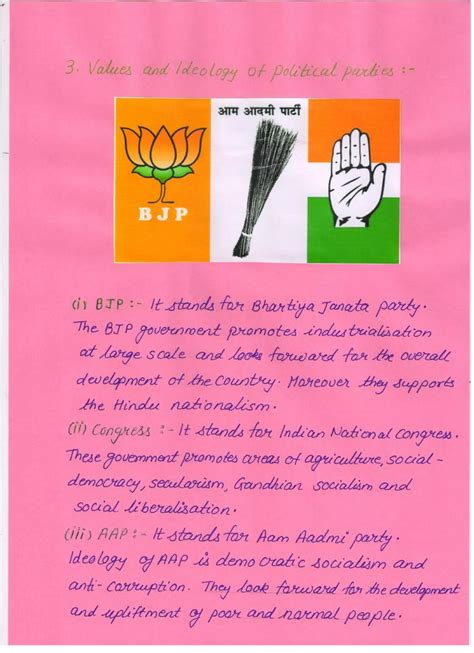 3. Values and Ideology of political parties :-
आम आदमी पार्टी
BJP
(i) BJP :- It stands for Bhartiya Janata party.
The BJP government promotes industrialisation
at large scale and looks forward for the overall
development of the Country. Moreover they supports
the Hindu nationalism.
(ii) Congress :- It stands for Indian National Congress.
These government promotes areas of agriculture, social-
democracy, secularism, Gandhian socialism and
social liberalisation.
(iii) AAP :- It stands for Aam Aadmi party.
Ideology of AAP is democratic socialism and
anti-corruption. They look forward for the development
and upliftment of poor and normal people.